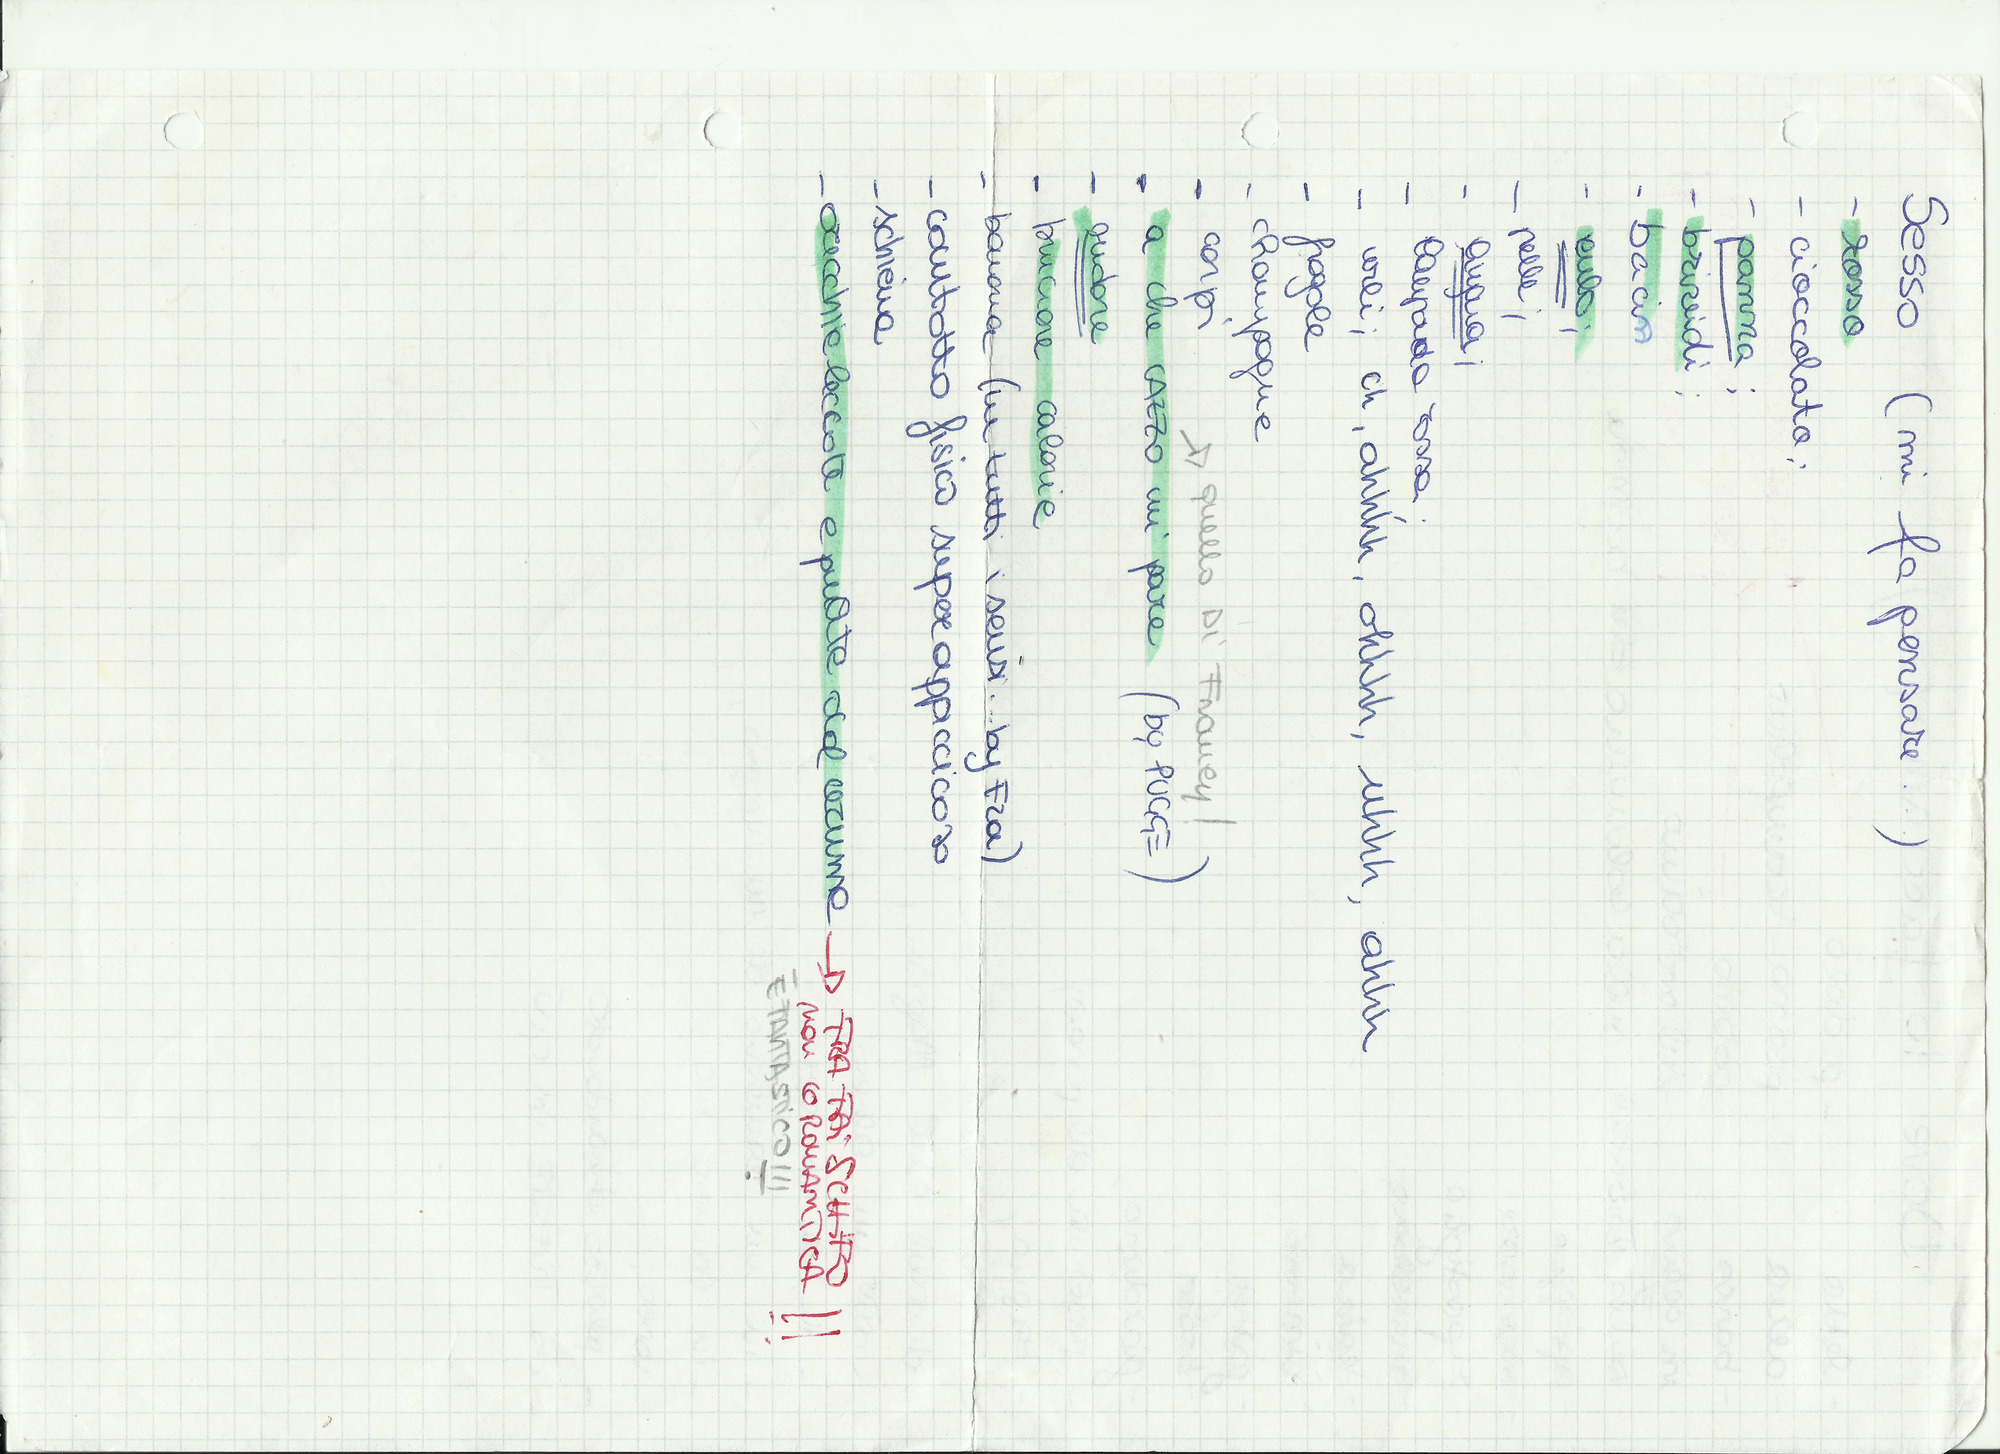 Sesso (mi fa pensare...)
- rosso
- cioccolato;
- panna;
- brividi;
- bacim
- culo;
- pelle;
- lingua;
- lampada rossa;
- urli; ch, ahhhh, ohhhh, uhhh, ahhh
- fragole
- champagne
- corpi → quello di Francy!
- a che CAZZO mi pare (by PUGGE)
- sudore
- bruciare calorie
- banana (in tutti i sensi... by Fra)
- contatto fisico superappiccicoso
- schiena
- orecchie leccate e pulite dal cerume → FRA FAI SCHIFO
non è ROMANTICA !!
È FANTASTICO!!!